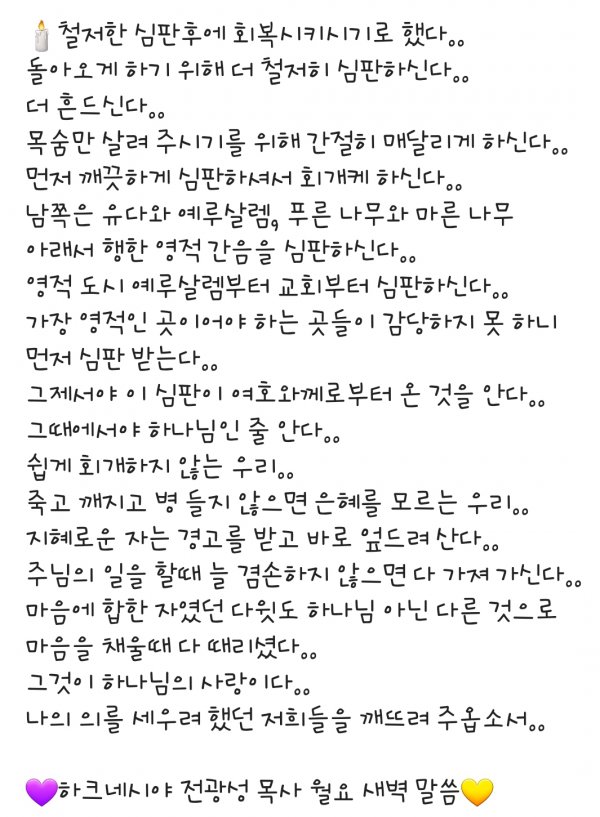 🕯 철저한 심판후에 회복시키시기로 했다..
돌아오게 하기 위해 더 철저히 심판하신다..
더 흔드신다..
목숨만 살려 주시기를 위해 간절히 매달리게 하신다..
먼저 깨끗하게 심판하셔서 회개케 하신다..
남쪽은 유다와 예루살렘, 푸른 나무와 마른 나무
아래서 행한 영적 간음을 심판하신다..
영적 도시 예루살렘부터 교회부터 심판하신다..
가장 영적인 곳이어야 하는 곳들이 감당하지 못 하니
먼저 심판 받는다..
그제서야 이 심판이 여호와께로부터 온 것을 안다..
그때에서야 하나님인 줄 안다..
쉽게 회개하지 않는 우리..
죽고 깨지고 병 들지 않으면 은혜를 모르는 우리..
지혜로운 자는 경고를 받고 바로 엎드려 산다..
주님의 일을 할때 늘 겸손하지 않으면 다 가져 가신다..
마음에 합한 자였던 다윗도 하나님 아닌 다른 것으로
마음을 채울때 다 때리셨다..
그것이 하나님의 사랑이다..
나의 의를 세우려 했던 저희들을 깨뜨려 주옵소서..
💜하크네시야 전광성 목사 월요 새벽 말씀💛